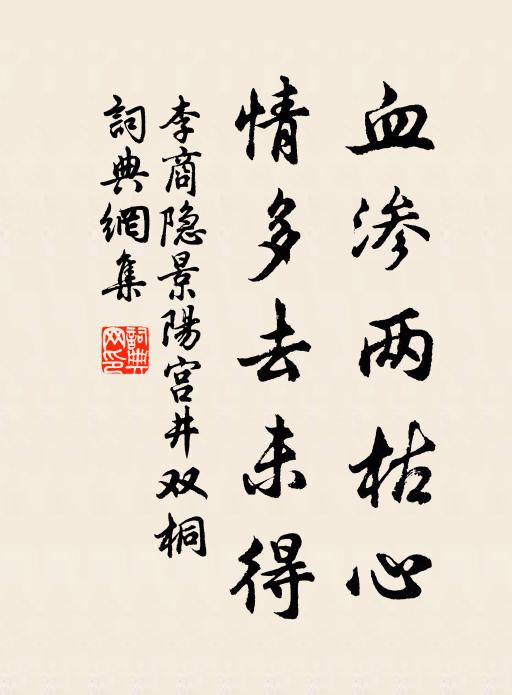 血渗两枯心
情多去未得
李商隐景陽宫井双桐
詞典網集
詞典网印